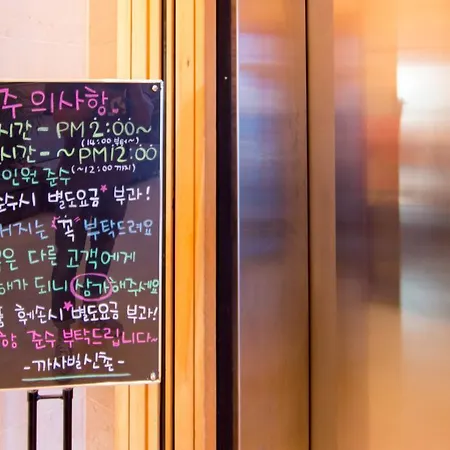 주 의사항
시간 - PM 2:00~
(14:00 부터~)
시간 - ~ PM 12:00
(~12:00 까지)
인원 준수
수시 별도요금* 부과!
거지는 "꼭" 부탁드려요
은 다른 고객에게
해가 되니 삼가해주세요
품 훼손시 *별도요금 부과!
항 준수 부탁드립니다~
- 까사빌신촌 -